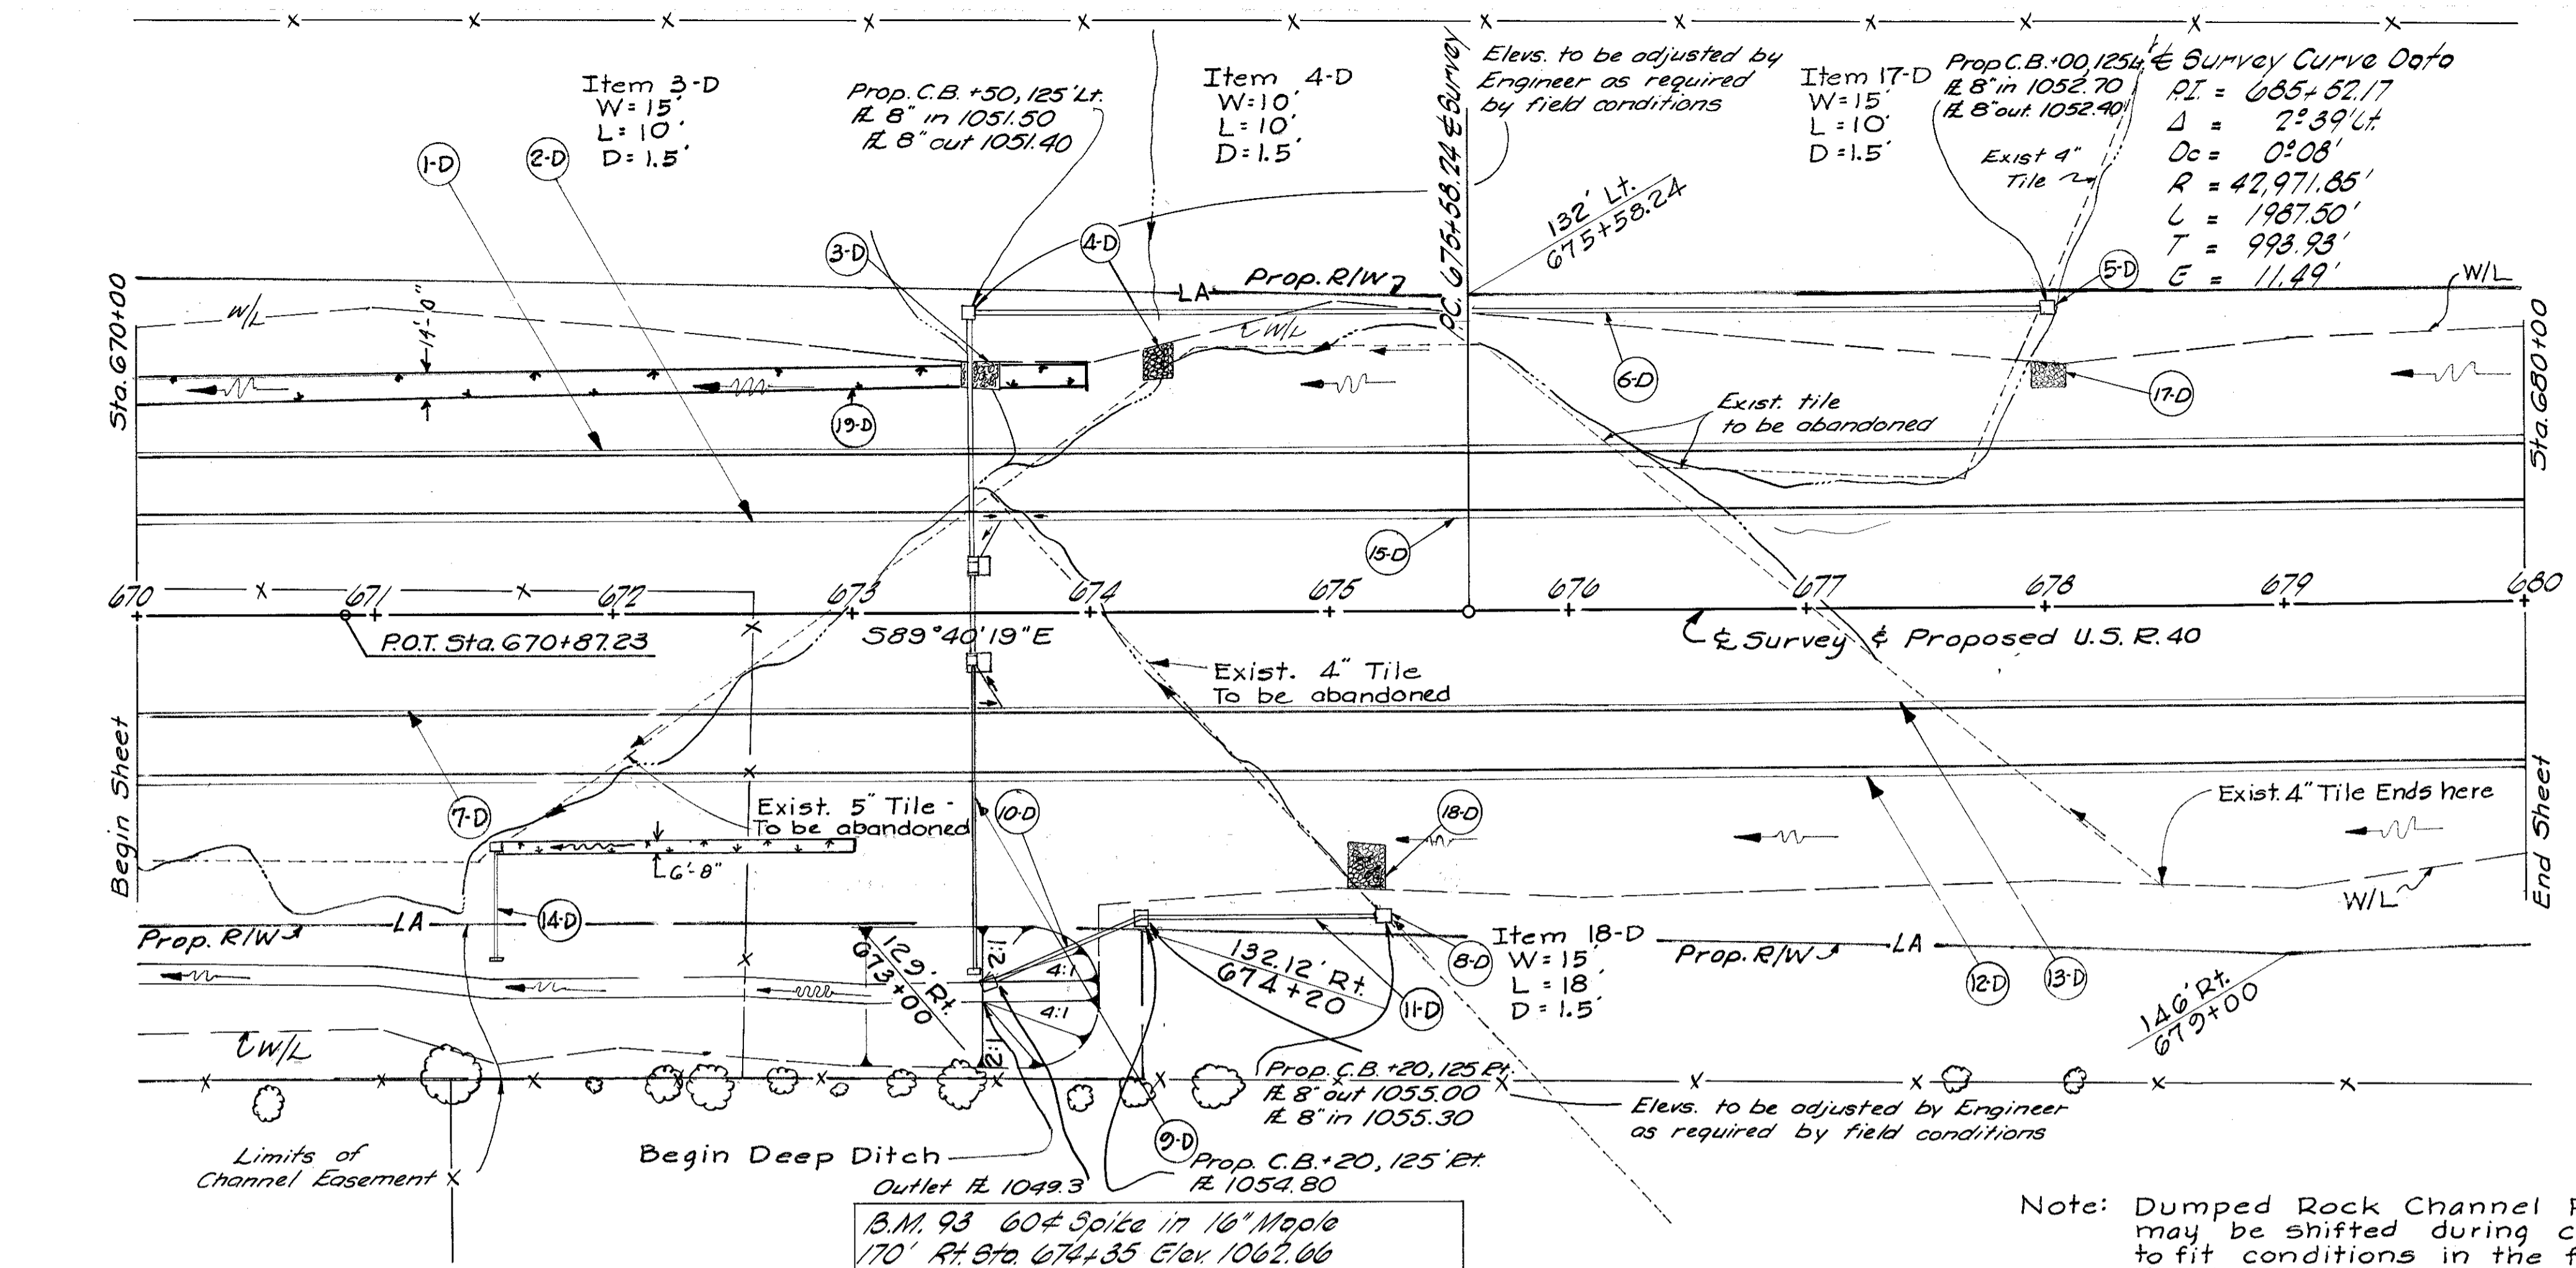 Item 3-D
W = 15'
L = 10'
D = 1.5'
Prop. C.B. +50, 125' Lt.
℄ 8" in 1051.50
℄ 8" out 1051.40
Item 4-D
W = 10'
L = 10'
D = 1.5'
P.C. 675+58.24 ℄ Survey
Elevs. to be adjusted by
Engineer as required
by field conditions
Item 17-D
W = 15'
L = 10'
D = 1.5'
Prop C.B. +00, 125 Lt
℄ 8" in 1052.70
℄ 8" out 1052.40
Exist 4"
Tile
℄ Survey Curve Data
P.I. = 685+52.17
Δ = 2°39' Lt.
Dc = 0°08'
R = 42,971.85'
L = 1987.50'
T = 993.93'
E = 11.49'
1-D
2-D
3-D
4-D
132' Lt.
675+58.24
5-D
W/L
Sta. 670+00
W/L
14'-0"
LA
Prop. R/W
W/L
6-D
17-D
Sta. 680+00
19-D
Exist. tile
to be abandoned
15-D
670
671
672
673
674
675
676
677
678
679
680
P.O.T. Sta. 670+87.23
S89°40'19"E
℄ Survey & Proposed U.S.R. 40
Exist. 4" Tile
To be abandoned
Begin Sheet
7-D
Exist. 5" Tile -
To be abandoned
10-D
18-D
Exist. 4" Tile Ends here
End Sheet
6'-8"
14-D
LA
Prop. R/W
W/L
129' Rt.
673+00
2:1
4:1
4:1
2:1
132.12' Rt.
674+20
11-D
8-D
Item 18-D
W = 15'
L = 18'
D = 1.5'
Prop. R/W
LA
12-D
13-D
W/L
146' Rt.
679+00
Prop. C.B. +20, 125 Rt.
℄ 8" out 1055.00
℄ 8" in 1055.30
Elevs. to be adjusted by Engineer
as required by field conditions
Limits of
Channel Easement
Begin Deep Ditch
9-D
Prop. C.B. +20, 125' Rt.
℄ 1054.80
Outlet ℄ 1049.3
B.M. 93 60¢ Spike in 16" Maple
170' Rt. Sta. 674+35 Elev. 1062.66
Note: Dumped Rock Channel
may be shifted during
to fit conditions in the